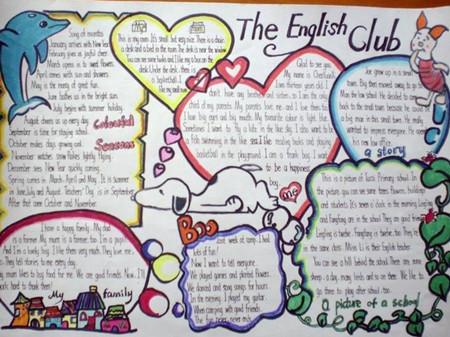 The English Club
Song of months
January arrives with New Year
February gives us joyful cheer.
March opens in to sweet flowers.
April comes with sun and showers.
May is the merry of great fun.
June bathes us in the bright sun.
July begins with summer holiday.
August cheers us up every day.
September is time for staying school.
October makes days growing cool.
November watches snow flakes lightly flying.
December sees New Year quickly coming.
Spring comes in March April and May. It is summer
in June, July and August. Teachers' Day is in September.
After that come October and November.
Colourful
Seasons
This is my room. It's small but very nice. There is a chair
a desk and a bed in the room. The desk is near the window.
You can see some books and
desk. Under the desk, there is
a basketball. I
like my small room.
Glad to see you.
My name is
I am thirteen years old. I
don't have any brothers and sisters, so I am the only
child of my parents. My parents love me, and I love them too.
I have big ears and big mouth. My favourite colour is light blue.
Sometimes I want to fly a kite in the blue sky. I also want to be
a fish swimming in the blue sea. I like reading books and playing
basketball in the playground. I am a frank boy. I want
to be a happiness
boy.
me
Joe grew up in a small
town. Then they moved away to go
law school. He decided to come
back to the small town because he could be
a big man in this small town. He really
wanted to impress everyone. He opens
his own law office.
a story
I have a happy family. My dad
is a farmer. My mum is a farmer, too. I'm a pupil.
And I'm a lovely boy. I like them very much. They love me,
They tell stories to me every day.
mum likes to buy food for me. We are good friends. Now, I'll
work hard to thank them!
My family
Boo
Last week at camp, I had
lots of fun!
Now I want to tell everyone.
We played games and planted flowers.
We danced and sang songs for hours.
In the evening, I played my guitar.
When camping with good friends.
The fun never, never ends.
This is a picture of Primary School. In
the picture, you can see some trees, flowers, buildings
and students. It's seven o'clock in the morning. Lingling
and Fangfang are in the school. They are good friends.
Lingling is twelve. Fangfang is twelve, too. They're
in the same class. Miss Li is their English teacher.
You can see a hill behind the school. There are some
sheep, a dog, many birds and so on there. We like to
go there to play after school, too.
a picture of a school